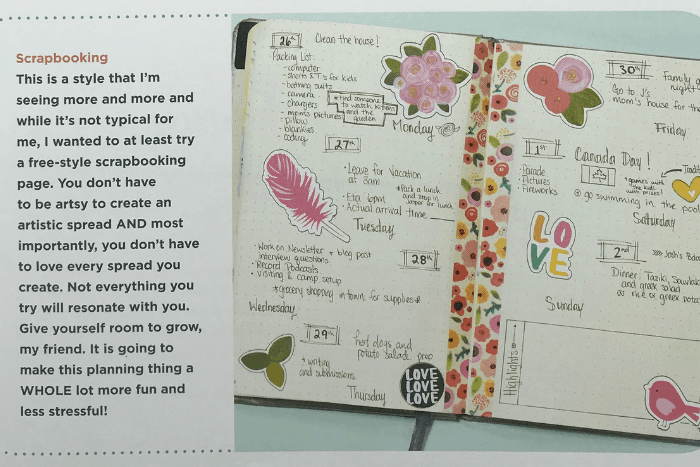 Scrapbooking
This is a style that I'm
seeing more and more and
while it's not typical for
me, I wanted to at least try
a free-style scrapbooking
page. You don't have
to be artsy to create an
artistic spread AND most
importantly, you don't have
to love every spread you
create. Not everything you
try will resonate with you.
Give yourself room to grow,
my friend. It is going to
make this planning thing a
WHOLE lot more fun and
less stressful!
26th
Clean the house!
Packing List:
- computer
- shorts & T's for kids
- bathing suits
- camera
- chargers
- mom's pictures
- pillow
- blankies
- cooler
* Find someone
to watch kittens
and the
garden
Monday
27th
• Leave for Vacation
at 8am
* Pack a lunch
and stop in
Jasper for lunch
• Eta 6pm
• Actual arrival time
Tuesday
• Work on Newsletter + blog post
Interview questions
• Record Podcasts
• Visiting & camp setup
* grocery shopping in town for supplies
28th
Wednesday
29th
hot dogs and
potato salad prep
* writing
and submissions
Thursday
LOVE
LOVE
LOVE
30th
Family
night
Go to J's
mom's house for the
Friday
1st
Canada Day!
• Parade
• Pictures
• Fireworks
* games with
the kids
with prizes!
go swimming in the pool
Saturday
LO
VE
2nd
Josh's
Dinner: Taziki, Souvlaki
and greek salad
w/ rice or greek
Sunday
Highlights